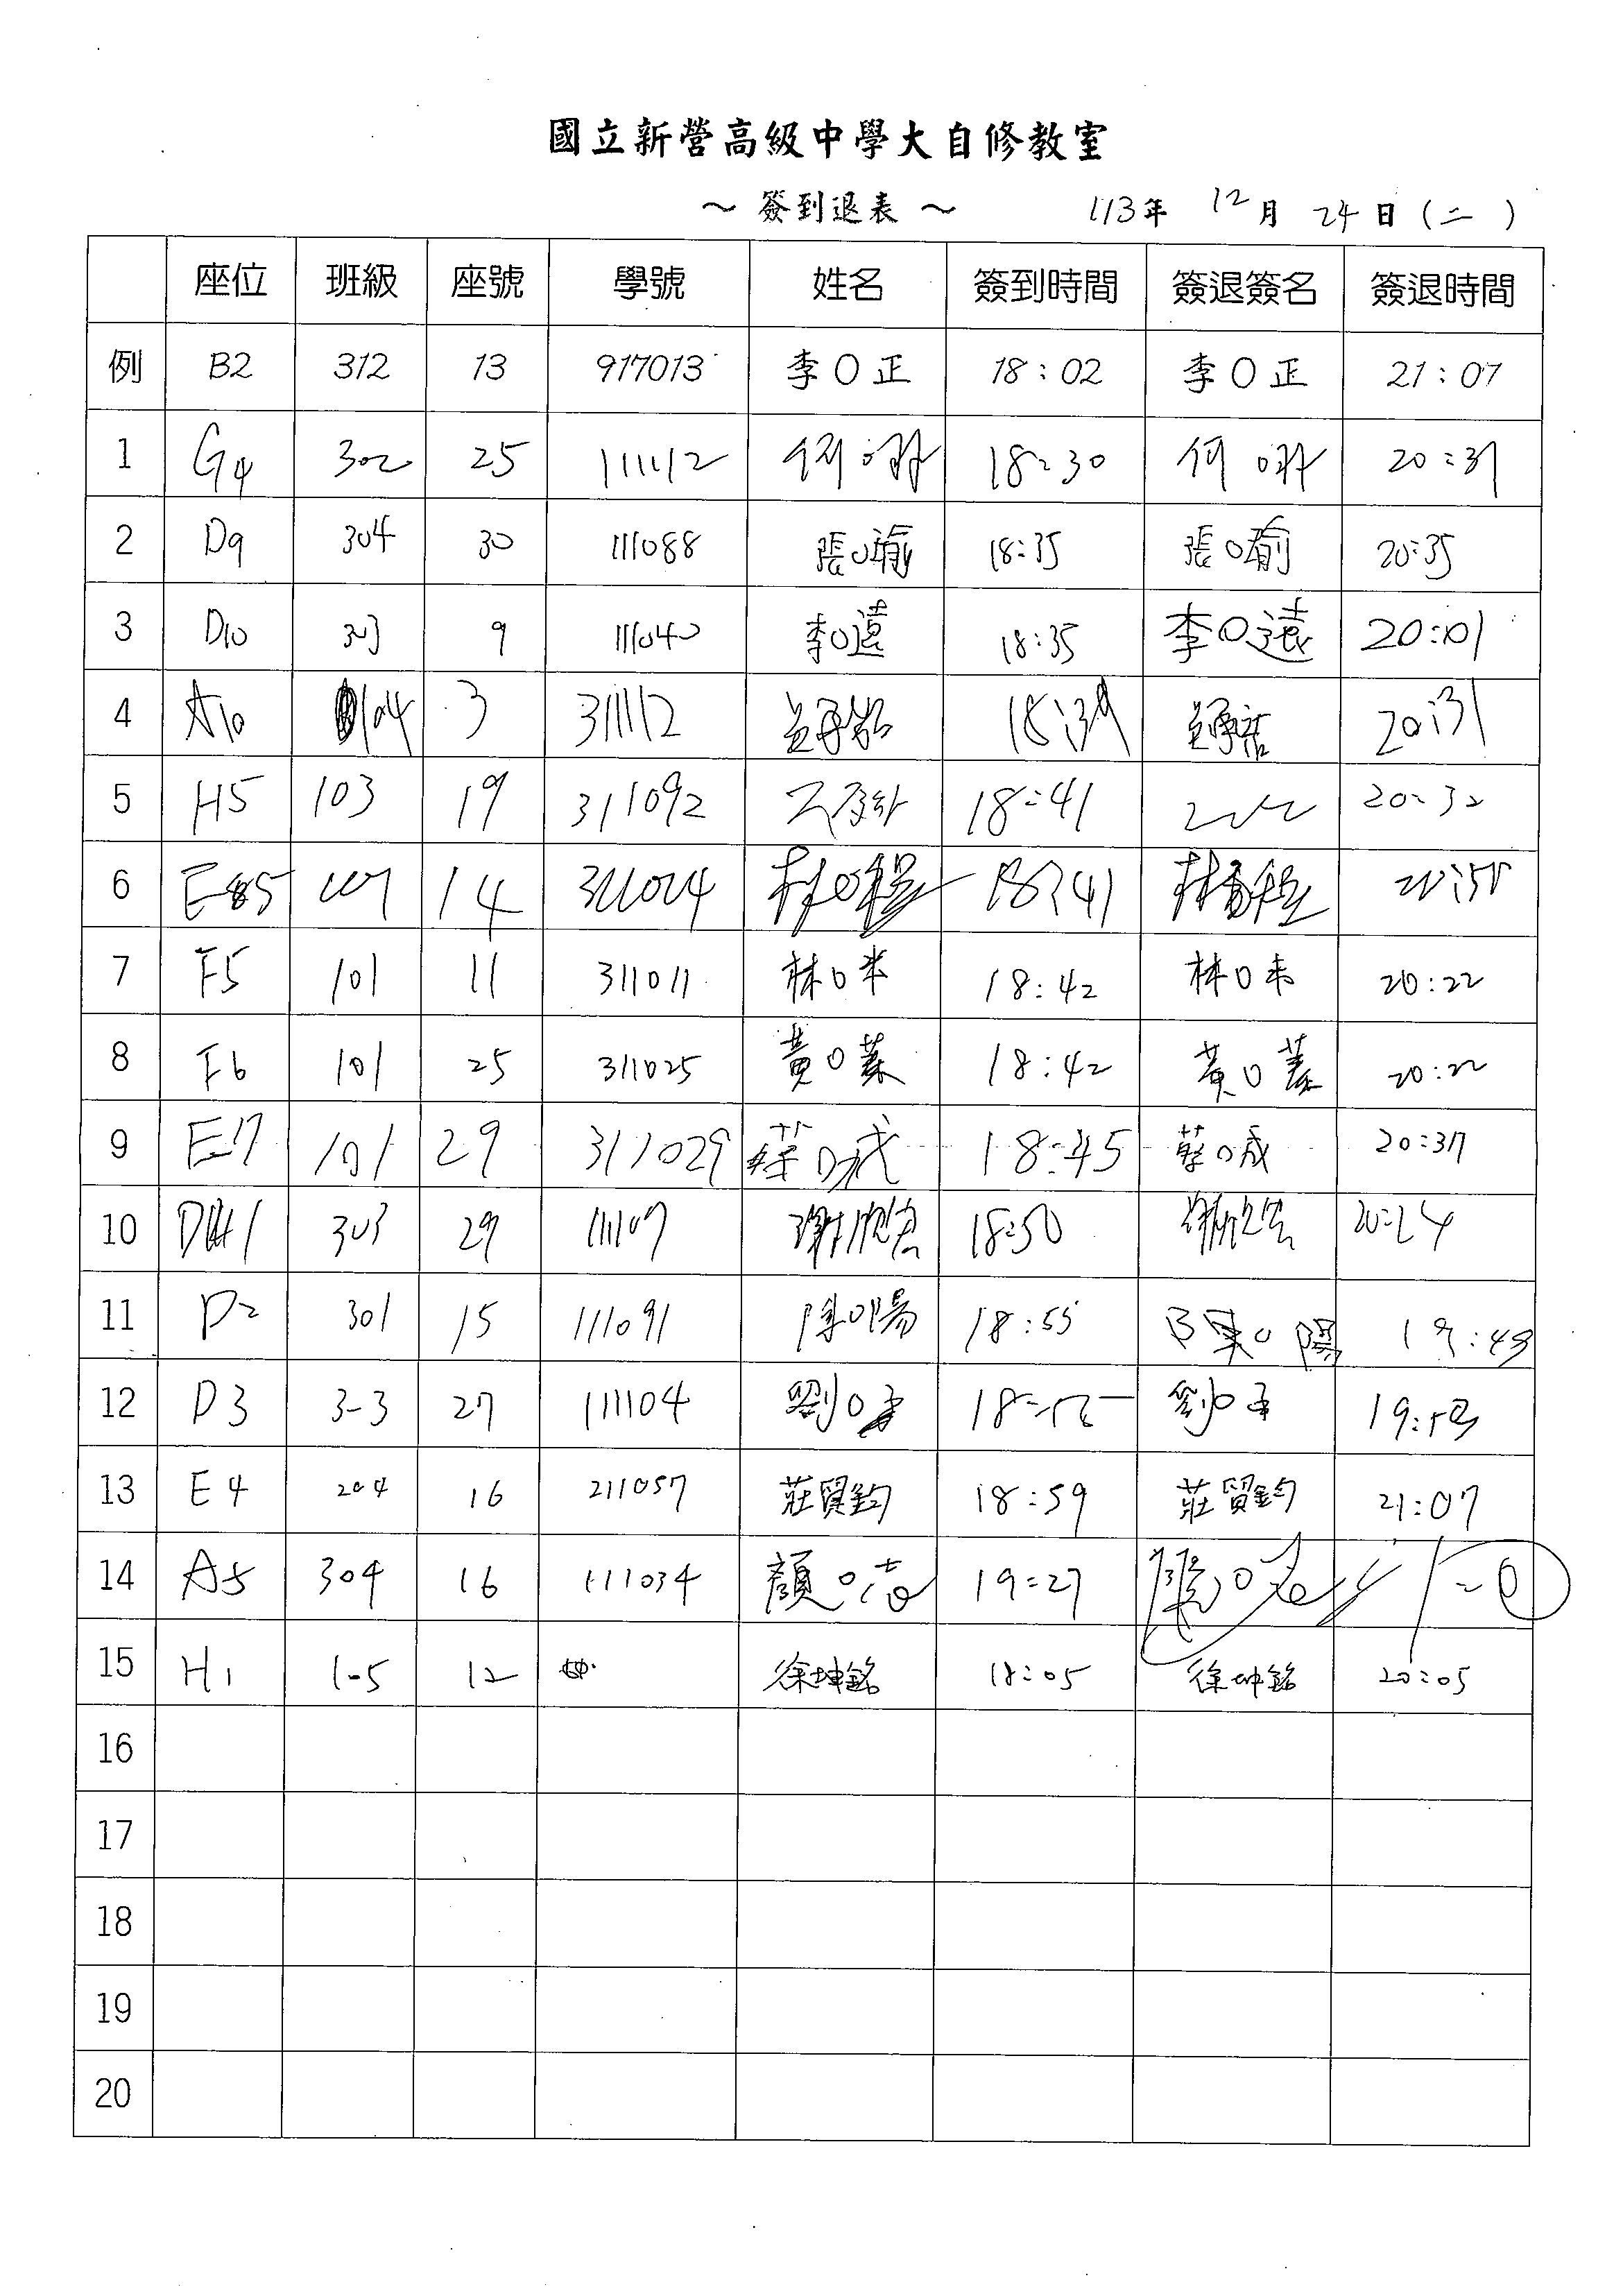 國立新營高級中學大自修教室
～ 簽到退表 ～ 113年 12月 24日(二)
座位 班級 座號 學號 姓名 簽到時間 簽退簽名 簽退時間
例 B2 312 13 917013 李○正 18:02 李○正 21:07
1 G4 302 25 111112 何○ 18:30 何○ 20:31
2 D9 304 30 111088 張○瑜 18:35 張○瑜 20:35
3 D10 303 9 111040 李○遠 18:35 李○遠 20:01
4 A10 104 3 311112 18:39 20:31
5 H5 103 19 311092 18:41 20:32
6 E5 107 14 林○程 18:41 林 程
7 F5 101 11 311011 林○ 18:42 林○ 20:22
8 F6 101 25 311025 黃○蓁 18:42 黃○蓁 20:22
9 E17 101 29 311029 蔡○成 18:45 蔡○成 20:37
10 303 29 111107 謝 18:50 謝 20:24
11 D2 301 15 111091 陳○陽 18:55 陳○陽 19:49
12 D3 303 27 111104 劉○ 劉○ 19:53
13 E4 204 16 211057 莊貿鈞 18:59 莊貿鈞 21:07
14 A5 304 16 111034 顏○ 19:27
15 H1 105 12 徐坤銘 18:05 徐坤銘 20:05
16
17
18
19
20